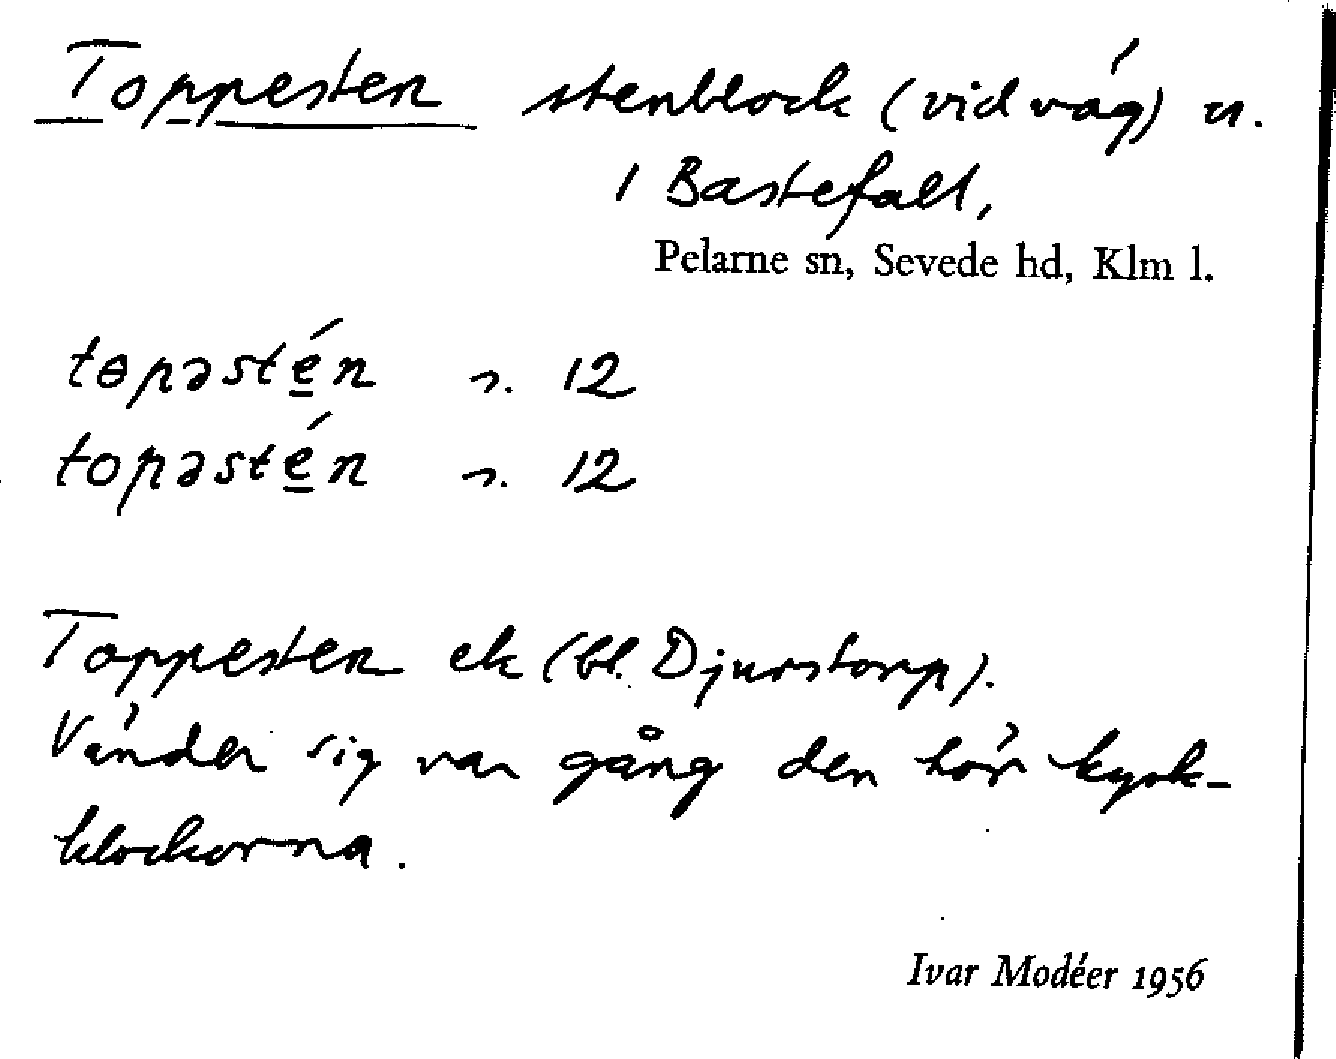 Toppesten stenblock (vid väg) n.
1 Bastefall,
Pelarne sn, Sevede hd, Klm l.
tɵpəstén s. 12
topəstén s. 12
Toppesten ek (bl. Djurstorp).
Vänder sig var gång den hör kyrk-
klockorna.
Ivar Modéer 1956